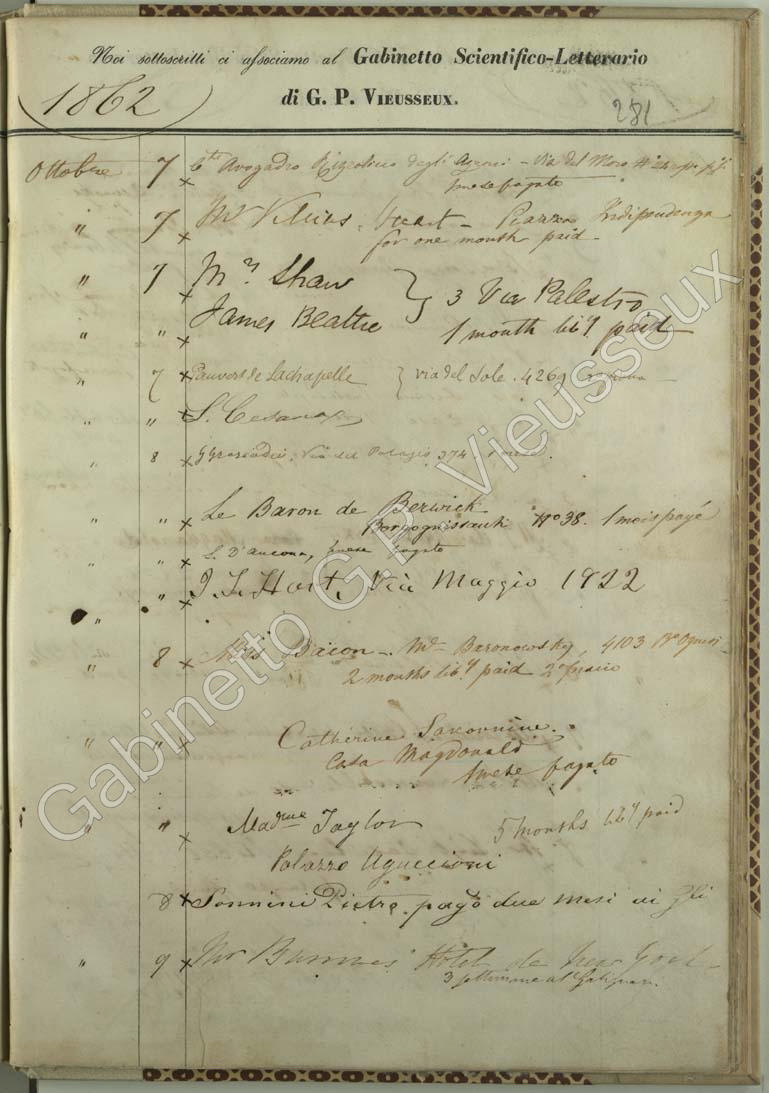 Noi sottoscritti ci associamo al Gabinetto Scientifico-Letterario
di G. P. Vieusseux.
1862
281
Ottobre 7 × Avogadro degli Azzoni - Via del Moro
1 mese pagato
" 7 × Mr - Piazza Indipendenza
for one month paid -
" 7 × Mr Shaw
" " × James Beattie } 3 Via Palestro
1 month lib y paid
" 7 × Pauvert de Lachapelle } via del Sole . 4269
" " × S.
" 8 × Via del Palagio 374 1 mese.
" " × Le Baron de Berwick
Borgognissanti No 38. 1 mois payé
" " × S. D'Ancona, 1 mese pagato
" " × J L Hart, Via Maggio 1922
" 8 × Miss Bacon - Me Baronowsky, 4103
2 months lib y paid
" " × Catherine
Casa MagDonald
1 mese pagato
" " × Madme Taylor 5 months lib y paid
Palazzo Uguccioni
8 × Sonnini Pietro pagò due mesi
" 9 × Mr Hotel de New York
3 settimane al
Gabinetto G.P. Vieusseux